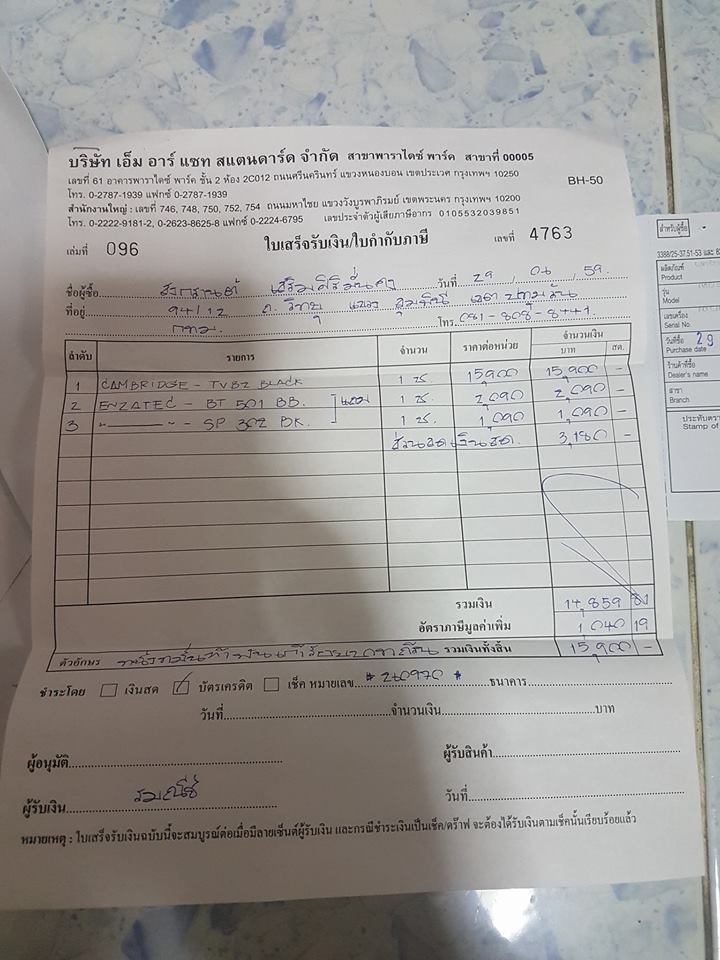 บริษัท เอ็ม อาร์ แซท สแตนดาร์ด จำกัด สาขาพาราไดซ์ พาร์ค สาขาที่ 00005
เลขที่ 61 อาคารพาราไดซ์ พาร์ค ชั้น 2 ห้อง 2C012 ถนนศรีนครินทร์ แขวงหนองบอน เขตประเวศ กรุงเทพฯ 10250
โทร. 0-2787-1939 แฟกซ์ 0-2787-1939
BH-50
สำนักงานใหญ่ : เลขที่ 746, 748, 750, 752, 754 ถนนมหาไชย แขวงวังบูรพาภิรมย์ เขตพระนคร กรุงเทพฯ 10200
โทร. 0-2222-9181-2, 0-2623-8625-8 แฟกซ์ 0-2224-6795 เลขประจำตัวผู้เสียภาษีอากร 0105532039851
เล่มที่ 096 ใบเสร็จรับเงิน/ใบกำกับภาษี เลขที่ 4763
ชื่อผู้ซื้อ วันที่ 29 / 59
ที่อยู่ 94/12 ถ. วิทยุ แขวง ลุมพินี เขต ปทุมวัน
กทม. โทร. 081-808-8441
ลำดับ รายการ จำนวน ราคาต่อหน่วย จำนวนเงิน
บาท สต.
1 CAMBRIDGE - TVB2 BLACK 1 15,900 15,900 -
2 ENZATEC - BT 501 BB. แถม 1 2,090 2,090 -
3 " — " - SP 302 BK. 1 1,090 1,090 -
ส่วนลดเงินสด. 3,180 -
รวมเงิน 14,859 81
อัตราภาษีมูลค่าเพิ่ม 1,040 19
ตัวอักษร หนึ่งหมื่นห้าพันเก้าร้อยบาทถ้วน รวมเงินทั้งสิ้น 15,900 -
ชำระโดย เงินสด / บัตรเครดิต เช็ค หมายเลข * 260970 * ธนาคาร
วันที่ จำนวนเงิน บาท
ผู้อนุมัติ ผู้รับสินค้า
ผู้รับเงิน วันที่
หมายเหตุ : ใบเสร็จรับเงินฉบับนี้จะสมบูรณ์ต่อเมื่อมีลายเซ็นต์ผู้รับเงิน และกรณีชำระเงินเป็นเช็ค/ดร๊าฟ จะต้องได้รับเงินตามเช็คนั้นเรียบร้อยแล้ว
สำหรับผู้ซื้อ
3388/25-37,51-53
ผลิตภัณฑ์
Product
รุ่น
Model
เลขเครื่อง
Serial No.
วันที่ซื้อ 29
Purchase date
ร้านค้า
Dealer's name
สาขา
Branch
ประทับตรา
Stamp of